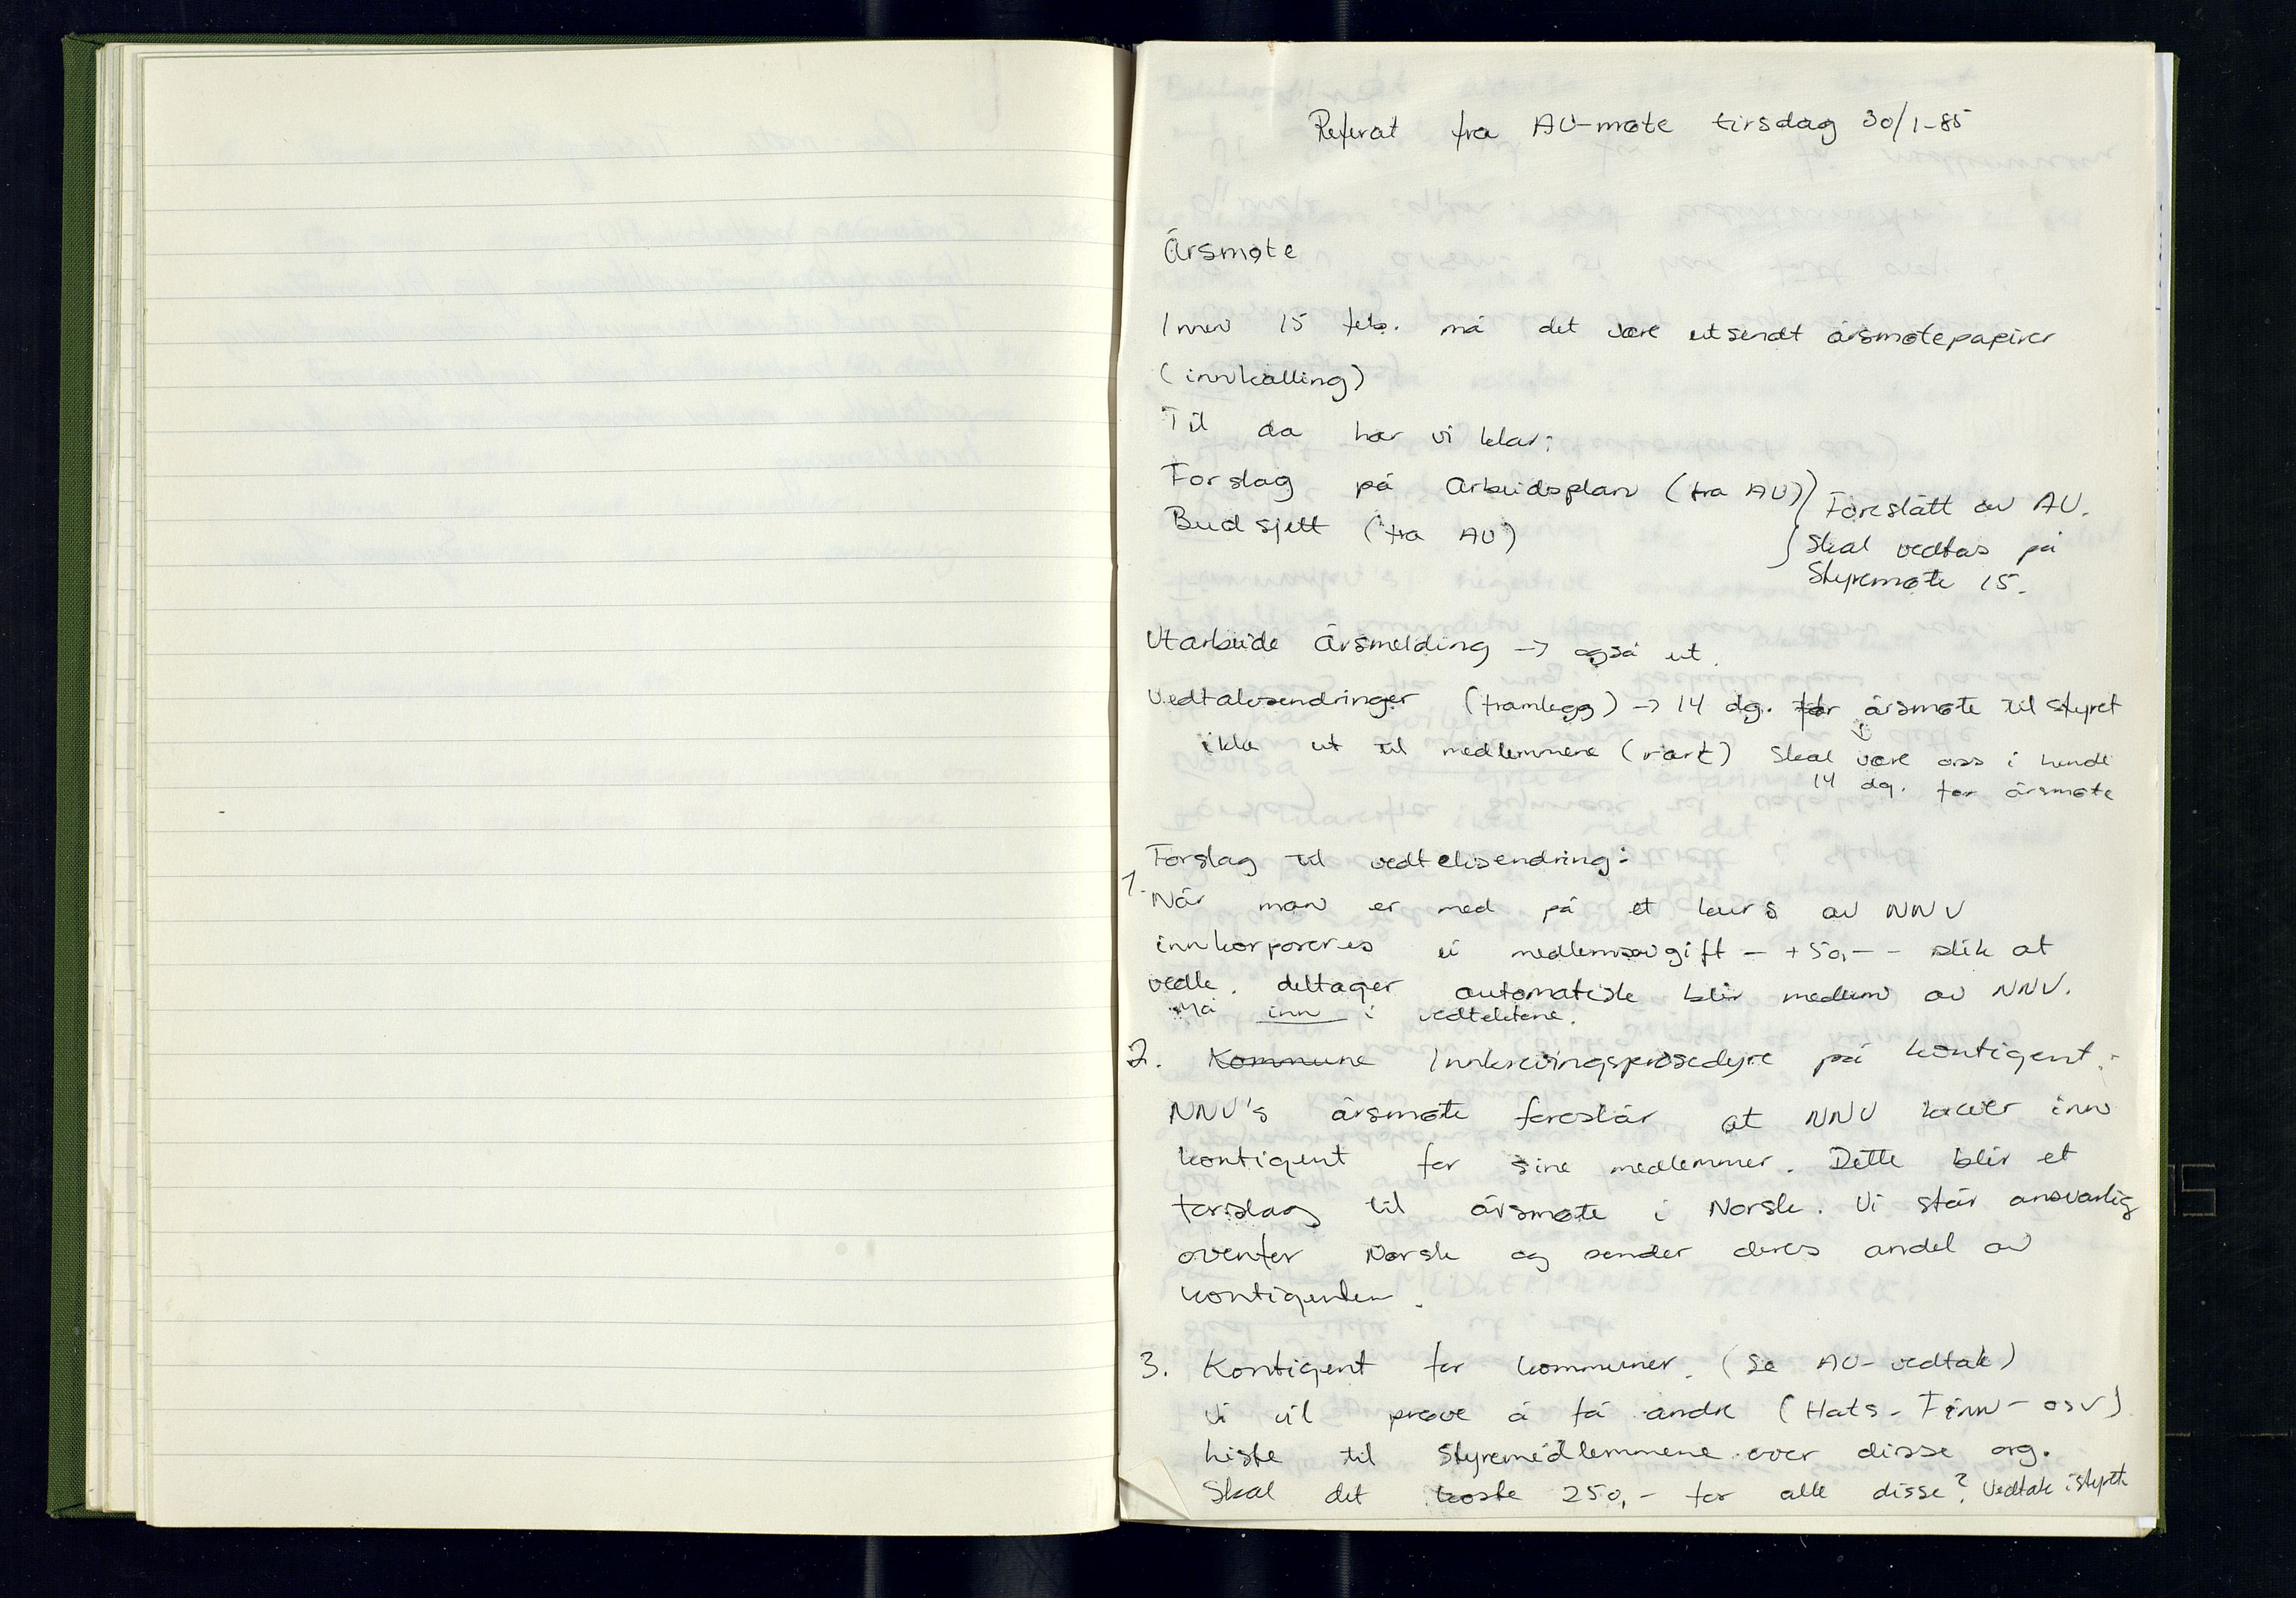 Referat fra AU-møte tirsdag 30/1-85
Årsmøte
Innen 15 feb. må det være utsendt årsmøtepapirer
(innkalling)
Til da har vi klar:
Forslag på Arbeidsplan (fra AU)
Budsjett (fra AU)
Foreslått av AU.
Skal vedtas på
Styremøte 15.
Utarbeide Årsmelding → også ut.
Vedtaksendringer (framlegg) → 14 dg. før årsmøte til styret
ikke ut til medlemmene (vårt) Skal være oss i hende
14 dg. før årsmøte
Forslag til vedtektsendring:
1. Når man er med på et kurs av NNV
innkorporeres ei medlemsavgift - +50,-- slik at
vedk. deltager automatisk blir medlem av NNV.
Må inn i vedtektene.
2. Kommune Innkrevingsprosedyre på kontigent:
NNV's årsmøte foreslår at NNV krever inn
kontigent for sine medlemmer. Dette blir et
forslag til årsmøte i Norsk. Vi står ansvarlig
ovenfor Norsk og sender deres andel av
kontigenten.
3. Kontigent for kommuner. (Se AU-vedtak)
Vi vil prøve å få andre (Hats- Finn- osv)
liste til Styremedlemmene over disse org.
Skal det koste 250,- for alle disse? Vedtak i styret